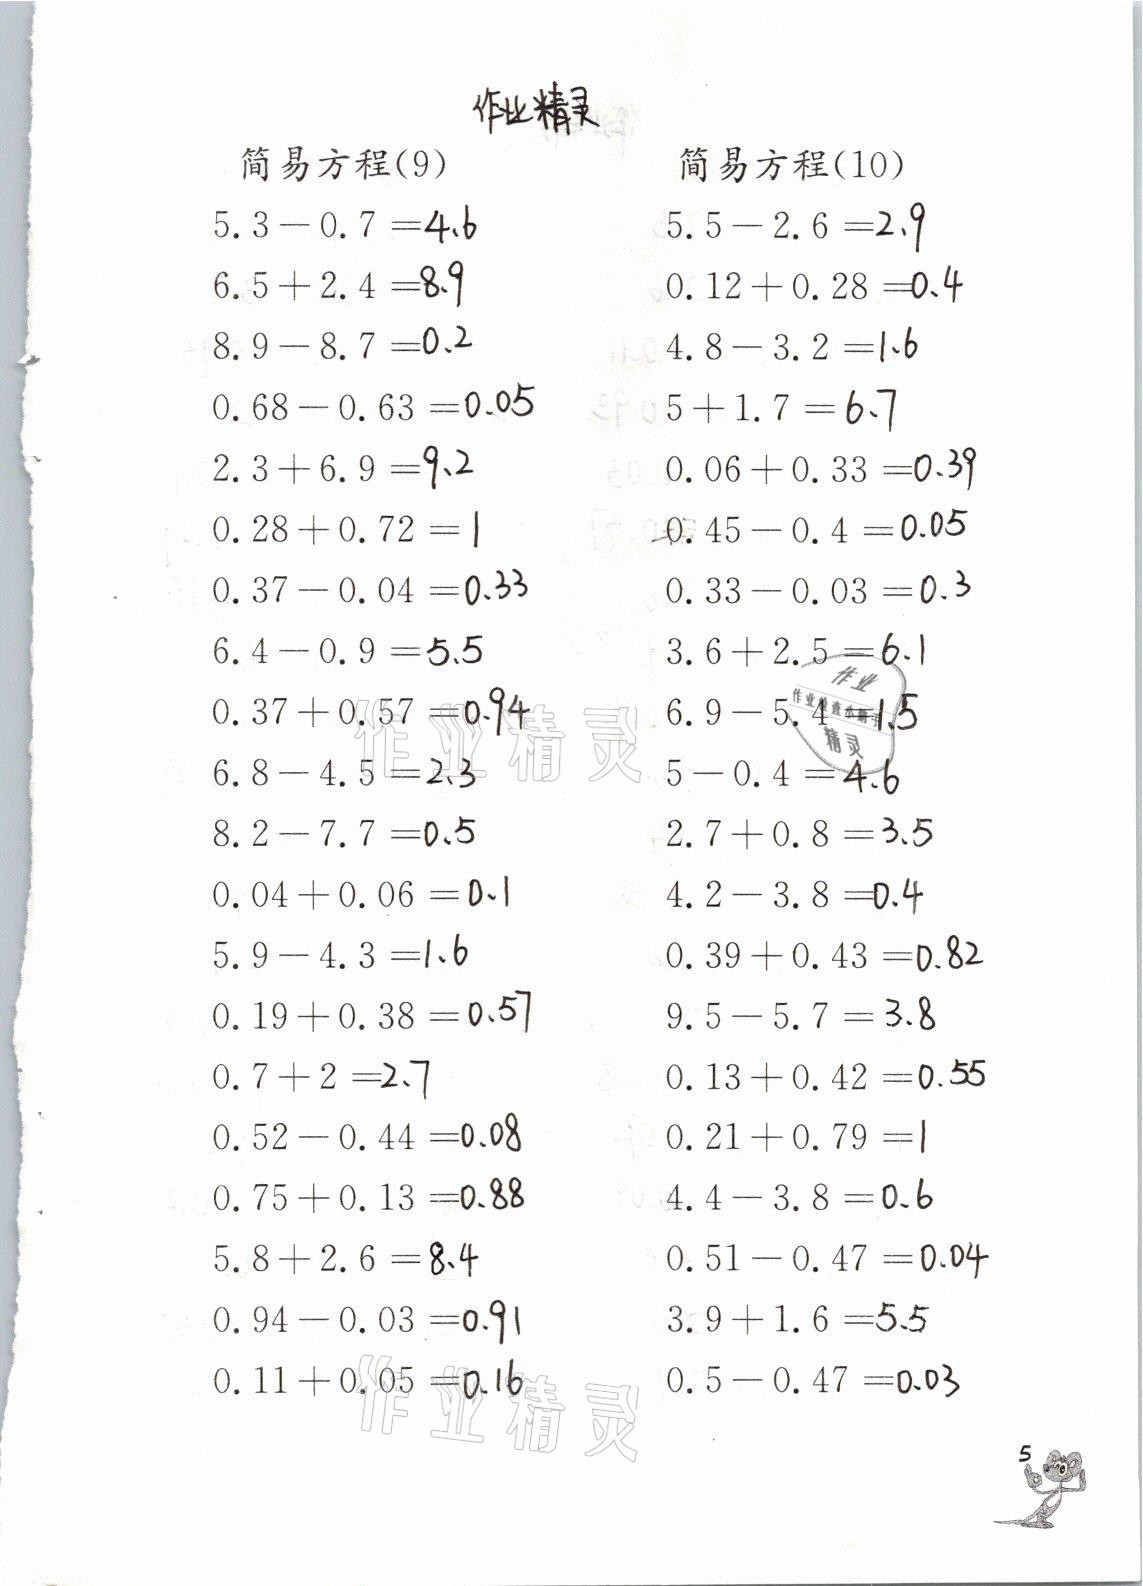 作业精灵
简易方程(9)
5.3－0.7＝4.6
6.5＋2.4＝8.9
8.9－8.7＝0.2
0.68－0.63＝0.05
2.3＋6.9＝9.2
0.28＋0.72＝1
0.37－0.04＝0.33
6.4－0.9＝5.5
0.37＋0.57＝0.94
6.8－4.5＝2.3
8.2－7.7＝0.5
0.04＋0.06＝0.1
5.9－4.3＝1.6
0.19＋0.38＝0.57
0.7＋2＝2.7
0.52－0.44＝0.08
0.75＋0.13＝0.88
5.8＋2.6＝8.4
0.94－0.03＝0.91
0.11＋0.05＝0.16
简易方程(10)
5.5－2.6＝2.9
0.12＋0.28＝0.4
4.8－3.2＝1.6
5＋1.7＝6.7
0.06＋0.33＝0.39
0.45－0.4＝0.05
0.33－0.03＝0.3
3.6＋2.5＝6.1
6.9－5.4＝1.5
5－0.4＝4.6
2.7＋0.8＝3.5
4.2－3.8＝0.4
0.39＋0.43＝0.82
9.5－5.7＝3.8
0.13＋0.42＝0.55
0.21＋0.79＝1
4.4－3.8＝0.6
0.51－0.47＝0.04
3.9＋1.6＝5.5
0.5－0.47＝0.03
作业精灵
作业
作业检查小助手
精灵
作业精灵
5